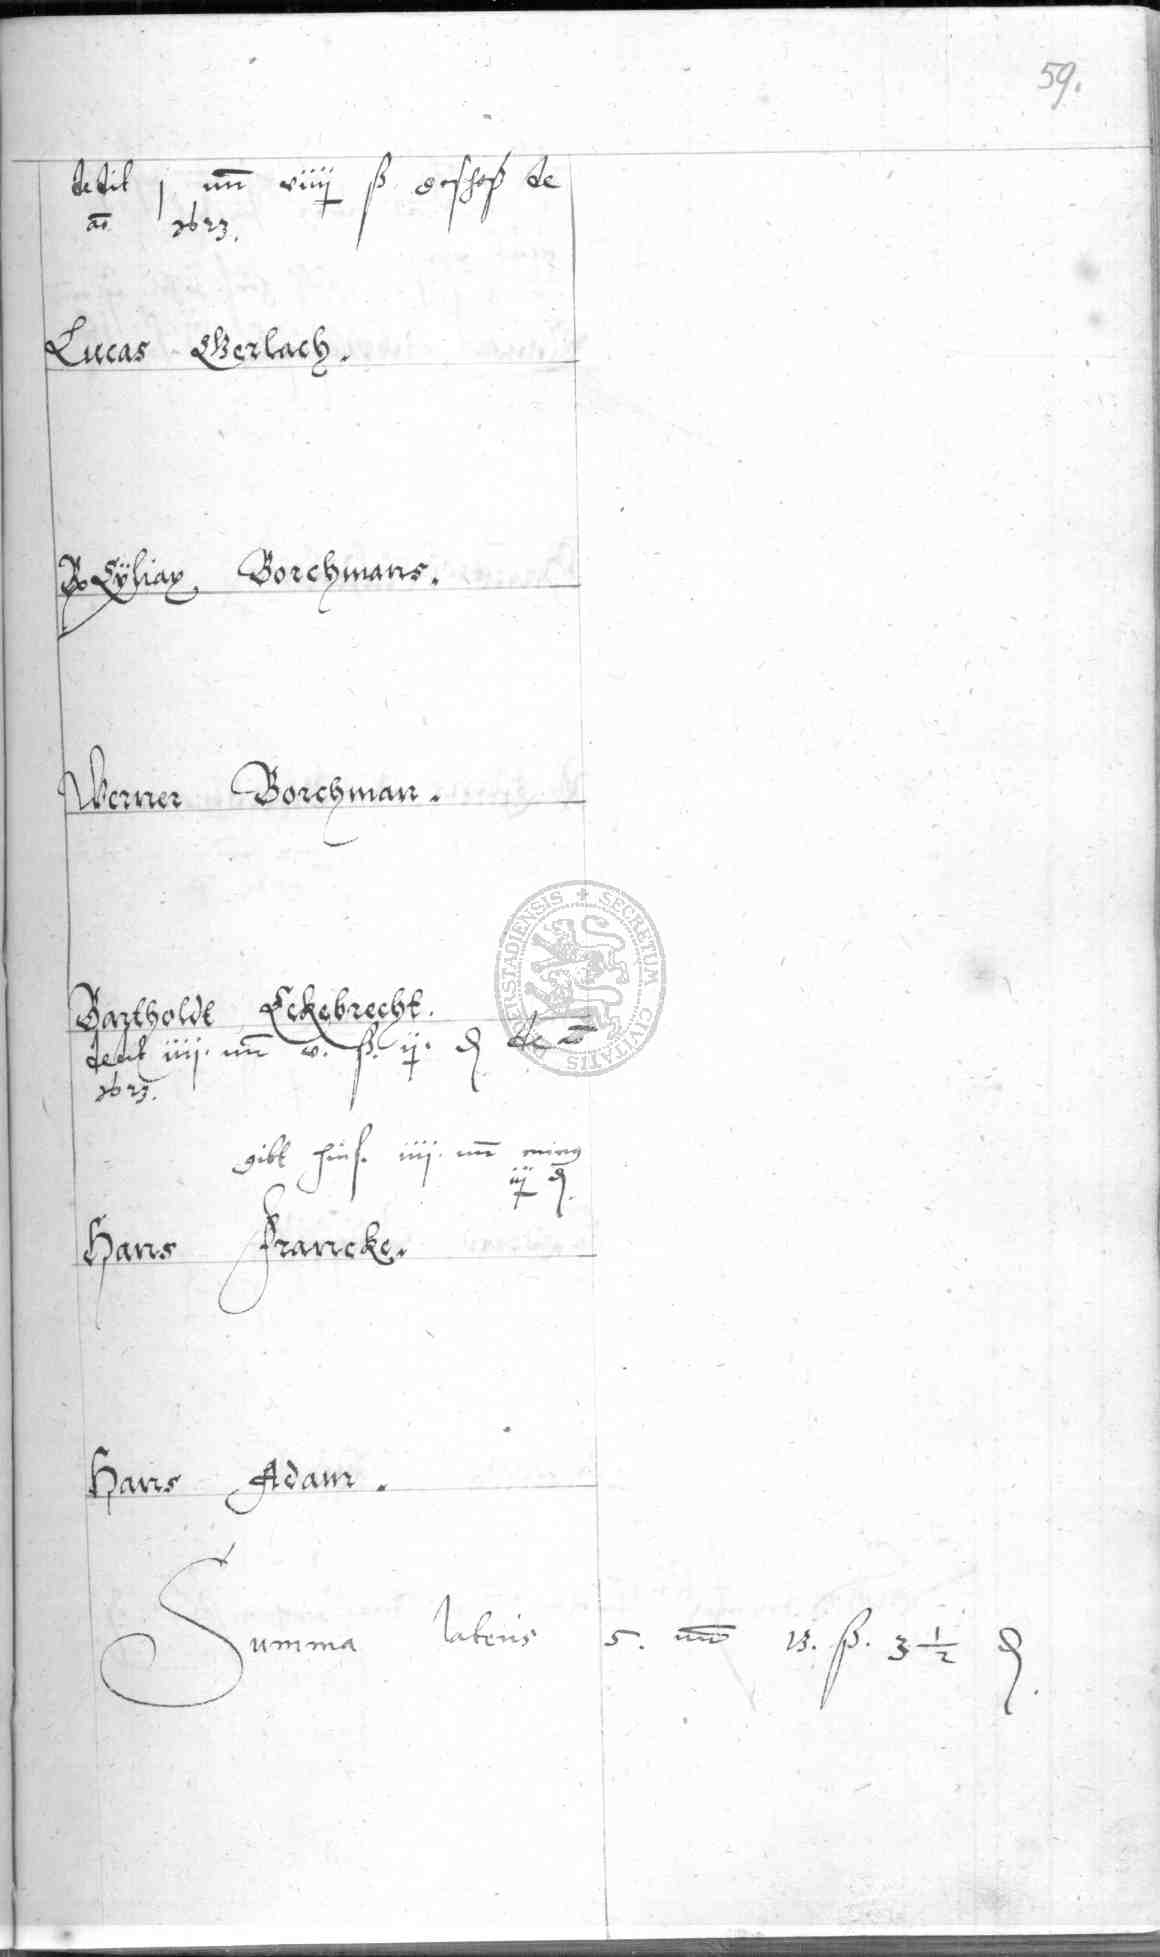 59.
dedit j mr viiij ß geschoß de
ao 1623.
Lucas Gerlach.
Borchmans.
Werner Borchman.
Bartholdt Eckebrecht.
dedit iiij. mr v. ß. ij. ₰ de ao
1623.
gibt hinf. iiij. mr minus
iij ₰.
Hans Francke.
Hans Adam.
Summa lateris 5. mr 13. ß. 3 1/2 ₰.
SECRETUM CIVITATIS DUDERSTADIENSIS